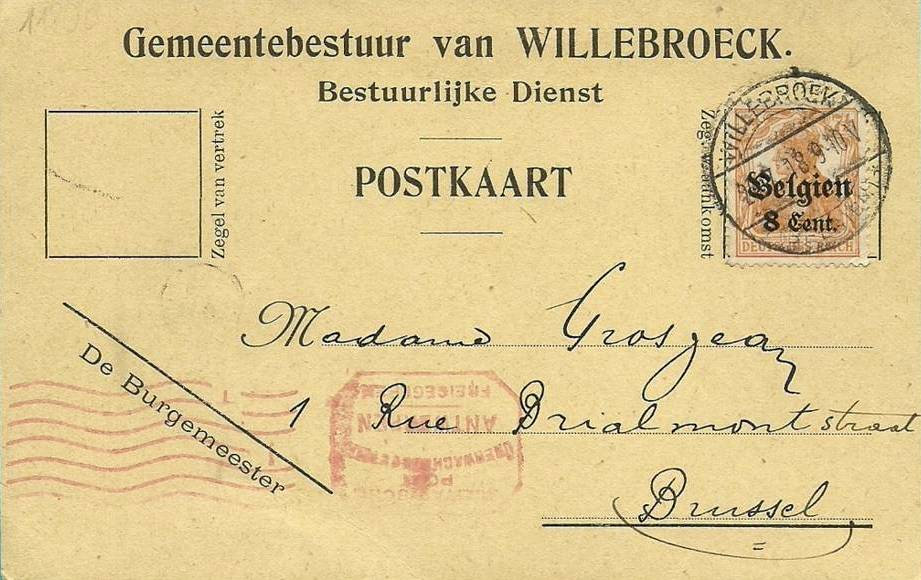 Gemeentebestuur van WILLEBROECK.
Bestuurlijke Dienst
POSTKAART
Zegel van vertrek
Zegel van aankomst
WILLEBROEK
18.9-10V
Belgien
8 Cent.
DEUTSCHES REICH
De Burgemeester
Madame Grosjean
1 Rue Brialmont straat
Brussel
ANTWERPEN